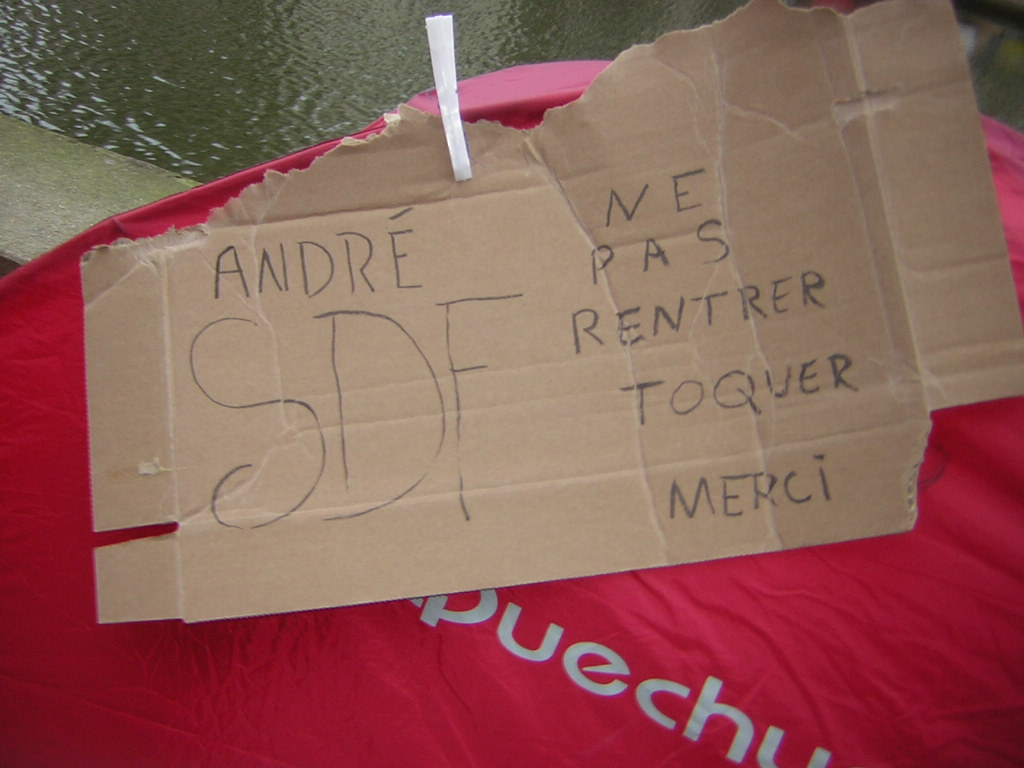 ANDRÉ
SDF
NE
PAS
RENTRER
TOQUER
MERCi
puechu